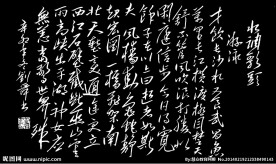 水调歌头
游泳
才饮长沙水又食武昌鱼
万里长江横渡极目楚天
舒不管风吹浪打胜似
闲庭信步今日得宽
馀子在川上曰逝者如斯
夫风樯动龟蛇静
起宏图一桥飞架南
北天堑变通途更立
西江石壁截断巫山云
雨高峡出平湖神女应
无恙当惊世界殊
www.nipic.com